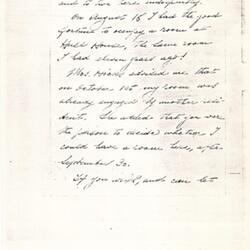 and to live here independently.
On August 18 I had the good
fortune to occupy a room at
Hull House, the same room
I had eleven years ago!
Mrs. Hicks advised me that
on October 1st my room was
already engaged by another resi-
dent. She added that you were
the person to decide whether I
could have a room here, after
September 30.
If you wish, and can let